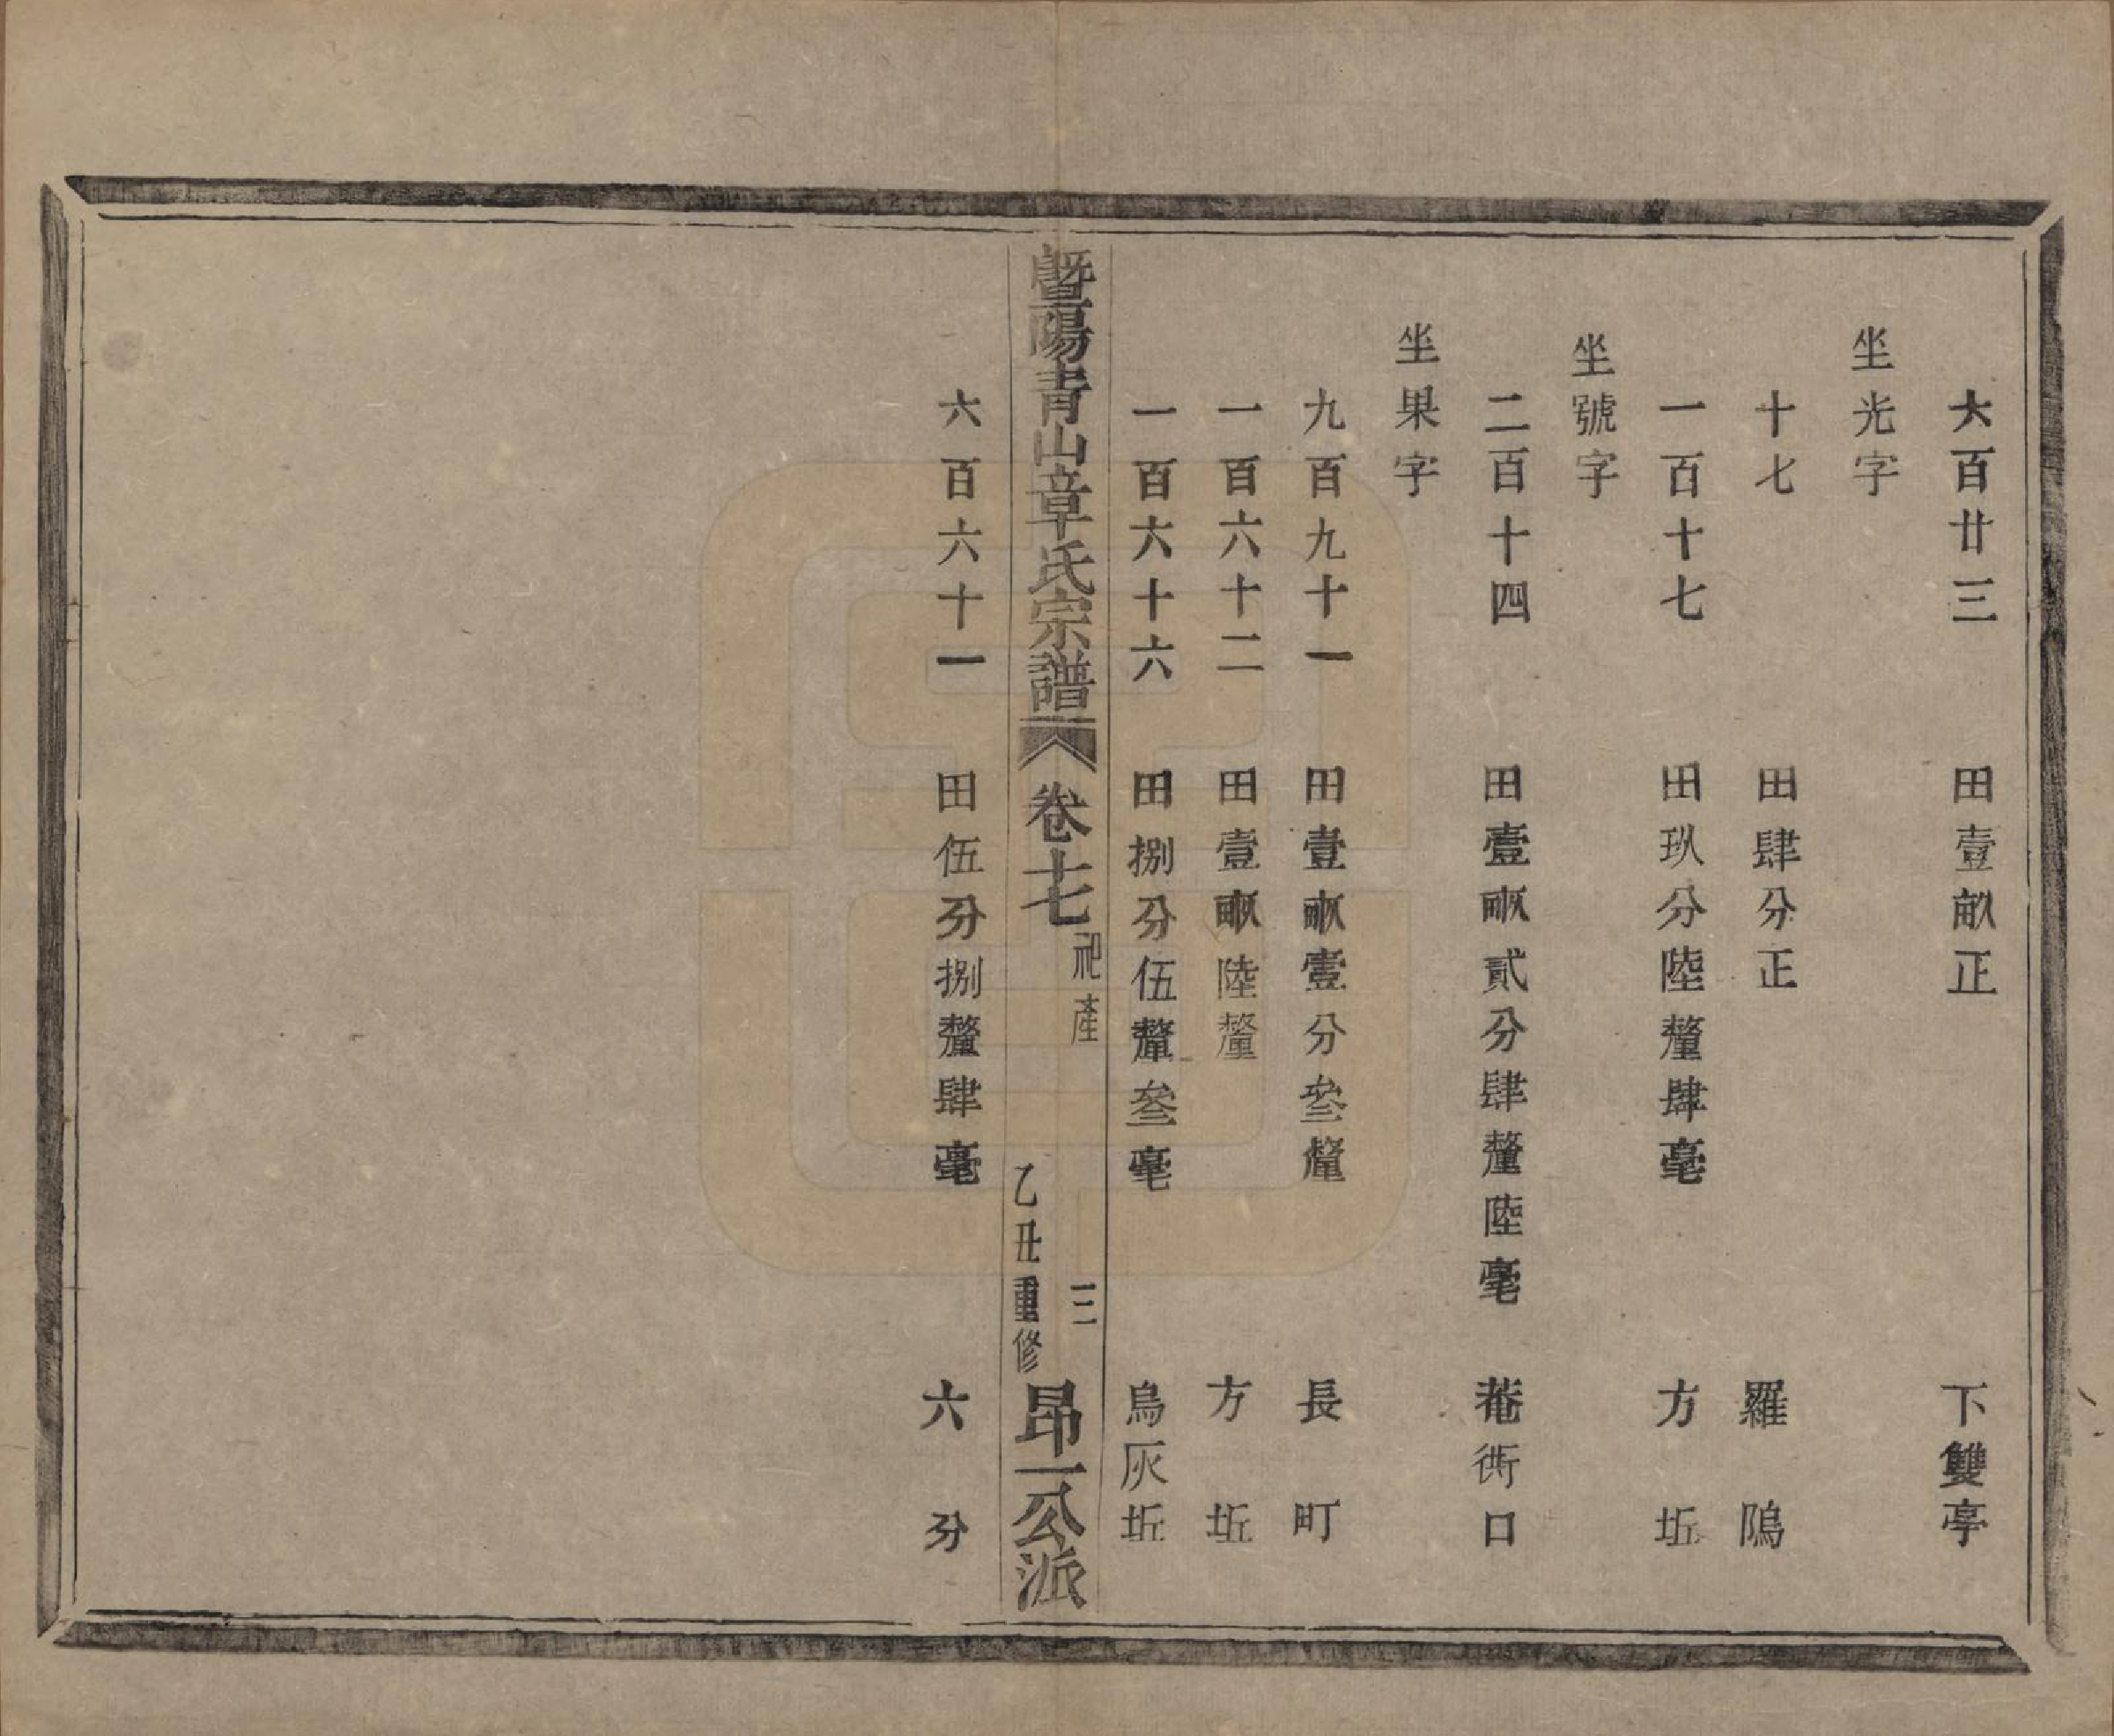 六百廿三　田壹畝正　下雙亭
坐光字
十七　田肆分正　羅隝
一百十七　田玖分陸釐肆毫　方坵
坐號字
二百十四　田壹畝貳分肆釐陸毫　菴衖口
坐果字
九百九十一　田壹畝壹分叄釐　長町
一百六十二　田壹畝陸釐　方坵
一百六十六　田捌分伍釐叄毫　烏灰坵
暨陽青山章氏宗譜　卷十七　祀產　三　乙丑重修　昂一公派
六百六十一　田伍分捌釐肆毫　六分